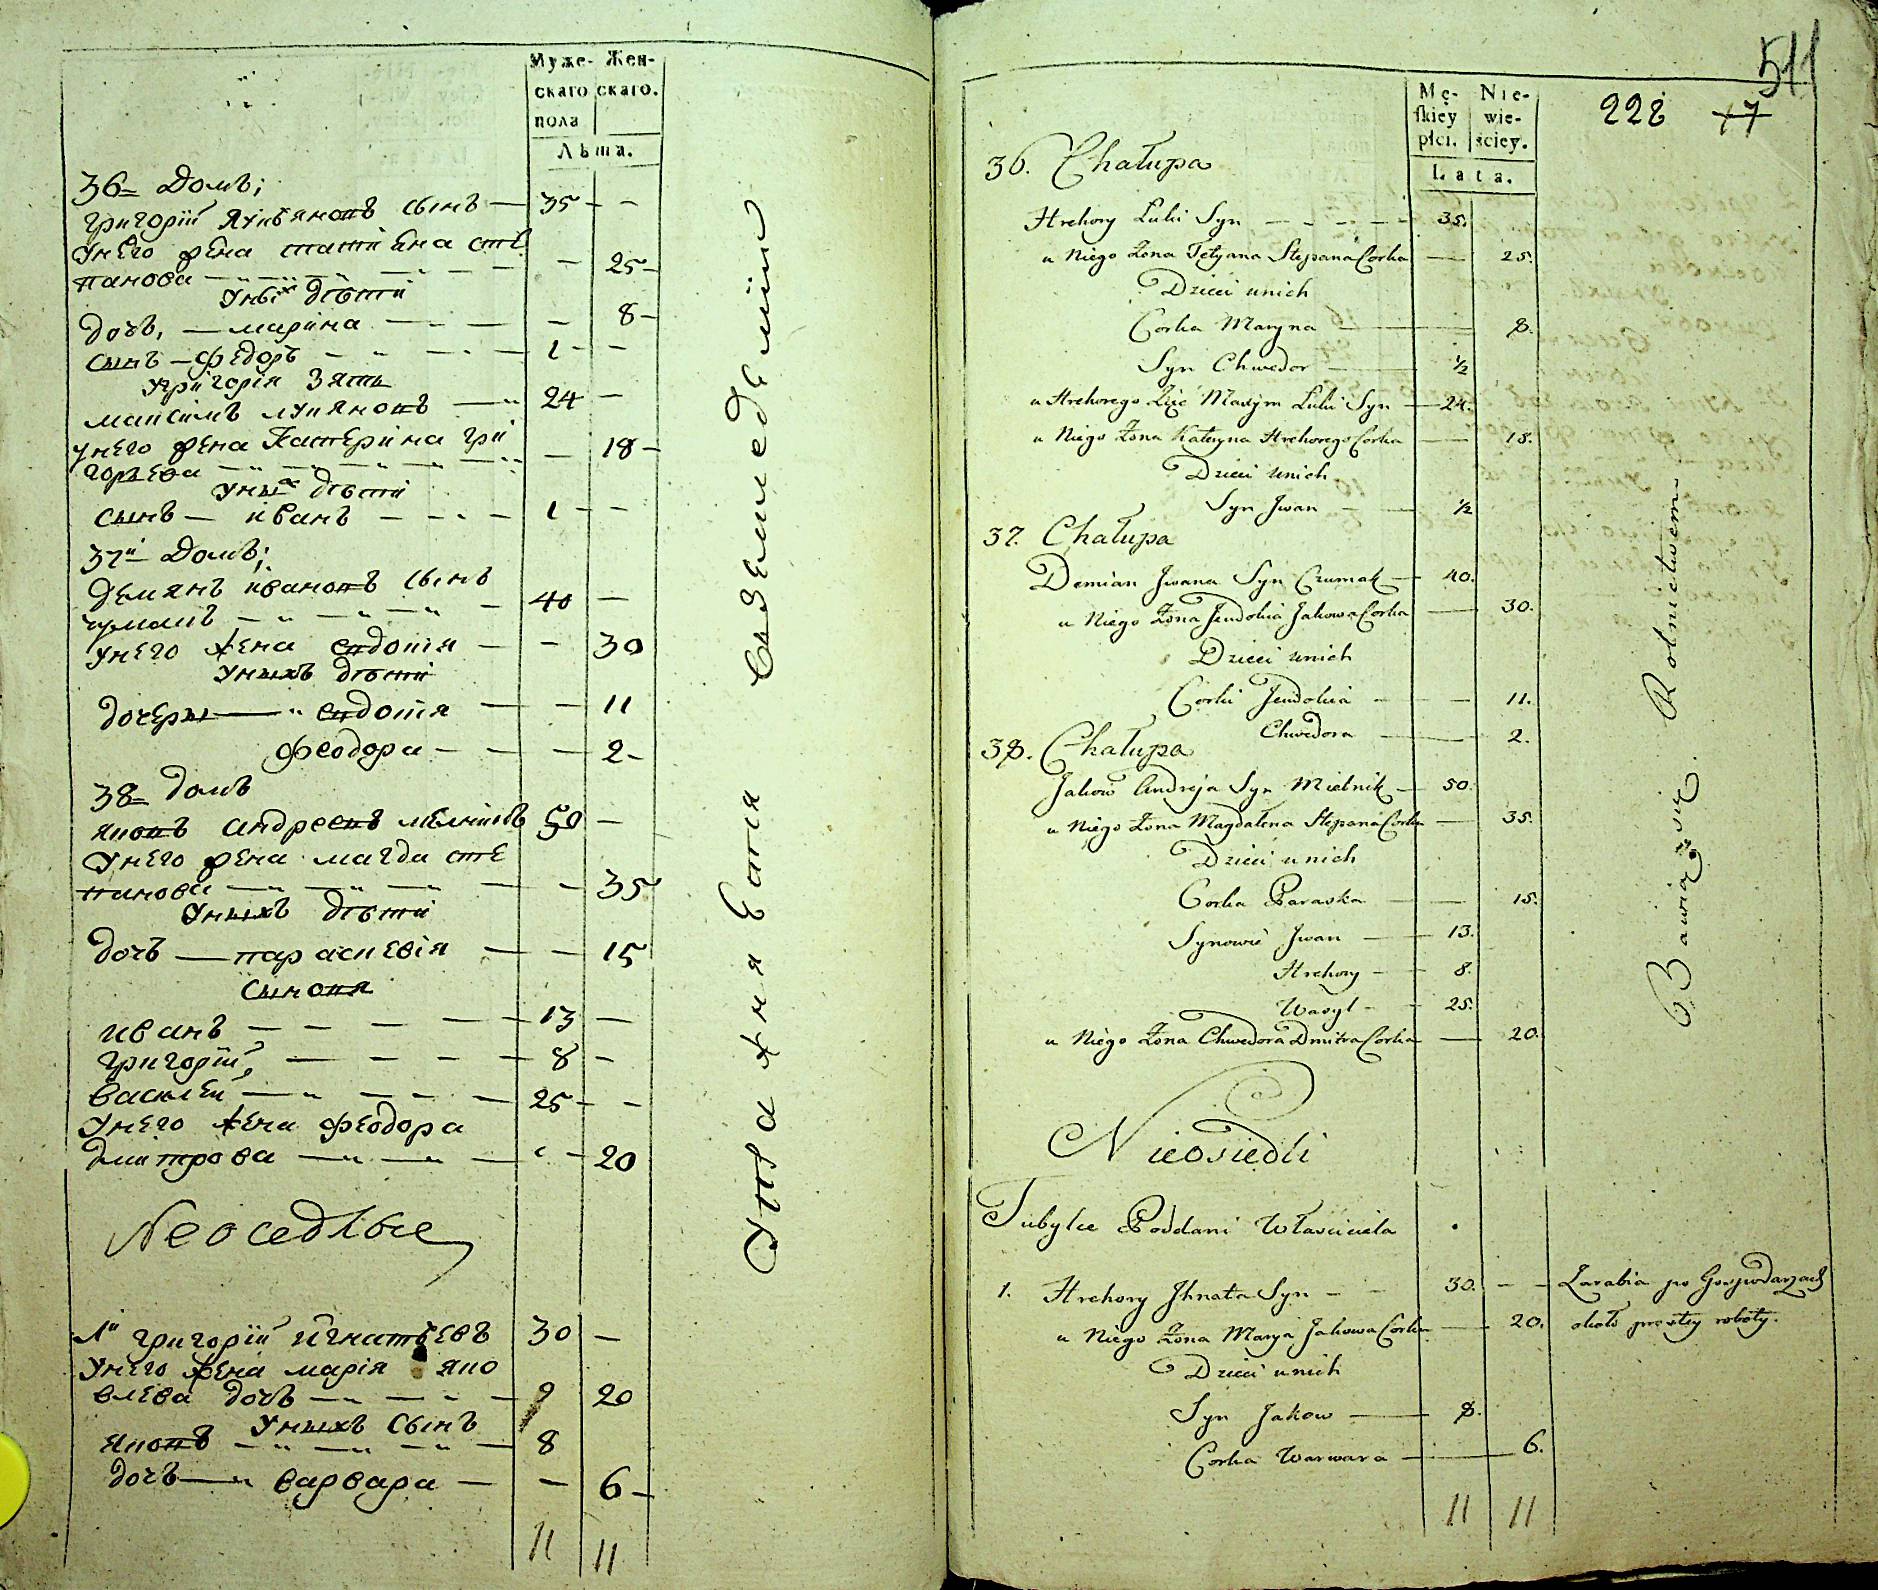 Муже- Жен-
скаго скаго.
пола
Лѣта.
36 Домъ;
Григорій Лукьяновъ сынъ — 35 - -
унего жена татиена сте
панова — — 25 -
уныхъ дѣти
дочь, — марина — — 8 -
сынъ — федоръ — 1 - -
Григорія зять
максимъ лукяновъ — 24 —
унего жена Катерина гри
горьева — — 18 -
уныхъ дѣти
сынъ — иванъ — 1 - -
37й Домъ;
Демянъ ивановъ сынъ
чумакъ — 40 —
унего жена евдокия — — 30
уныхъ дѣти
дочеры — евдокия — — 11
феодора — — 2 -
38 домъ
яковъ андреевъ мелникъ 50 —
унего жена магда сте
панова — — 35
уныхъ дѣти
дочь — параскевія — — 15
сыновя
иванъ — 13 —
григорій — 8 —
василеи — 25 - -
унего жена феодора
дмитрова — — 20
Неоседлые
1й григорій игнатьевъ 30 —
унего жена марія яко
влева дочь — 20
уныхъ сынъ
яковъ — 8
дочь — варвара — — 6 -
11 11
Упражняется въ земледелии
511
228 17
Mę- Nie-
skiey wie-
płci. ściey.
Lata.
36. Chałupa
Hrehory Luki Syn — 35.
u Niego Żona Tetyana Stepana Corka — 25.
Dzieci unich
Corka Maryna — 8.
Syn Chwedor — ½
u Hrehorego Zięć Maxym Luki Syn — 24.
u Niego Żona Kateryna Hrehorego Corka — 18.
Dzieci unich
Syn Jwan — ½
37. Chałupa
Demian Jwana Syn Czumak — 40.
u Niego Żona Jewdokia Jakowa Corka — 30.
Dzieci unich
Corki Jewdokia — 11.
Chwedora — 2.
38. Chałupa
Jakow Andreja Syn Mielnik — 50.
u Niego Żona Magdalena Stepana Corka — 35.
Dzieci unich
Corka Paraska — 15.
Synowie Jwan — 13.
Hrehory — 8.
Wasyl — 25.
u Niego Żona Chwedora Dmitra Corka — 20.
Nieosiedli
Tubylce Poddani Właściciela
1. Hrehory Jhnata Syn — 30. — Zarabia po Gospodarzach
u Niego Żona Marya Jakowa Corka — 20. około prostey roboty.
Dzieci unich
Syn Jakow — 8.
Corka Warwara — 6.
11 11
Bawią się Rolnictwem